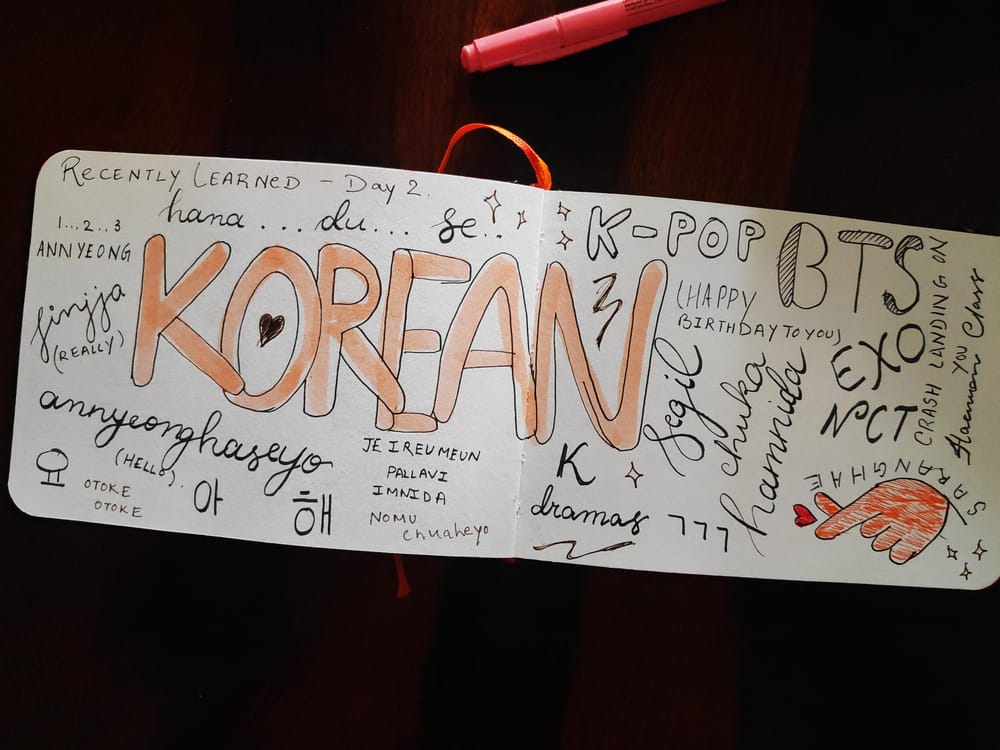 RECENTLY LEARNED - DAY 2.
1...2..3
hana ... du... se..
ANNYEONG
KOREAN
jinjja
(REALLY)
annyeonghaseyo
(HELLO).
요
OTOKE
OTOKE
아
해
JE IREUMEUN
PALLAVI
IMNIDA
NOMU
chuaheyo
K-POP
BTS
(HAPPY
BIRTHDAY TO YOU)
Segil
chuka
hamnida
EXO
NCT
CRASH LANDING ON
YOU
Class
SARANGHAE
K
dramas
ㅋㅋㅋ